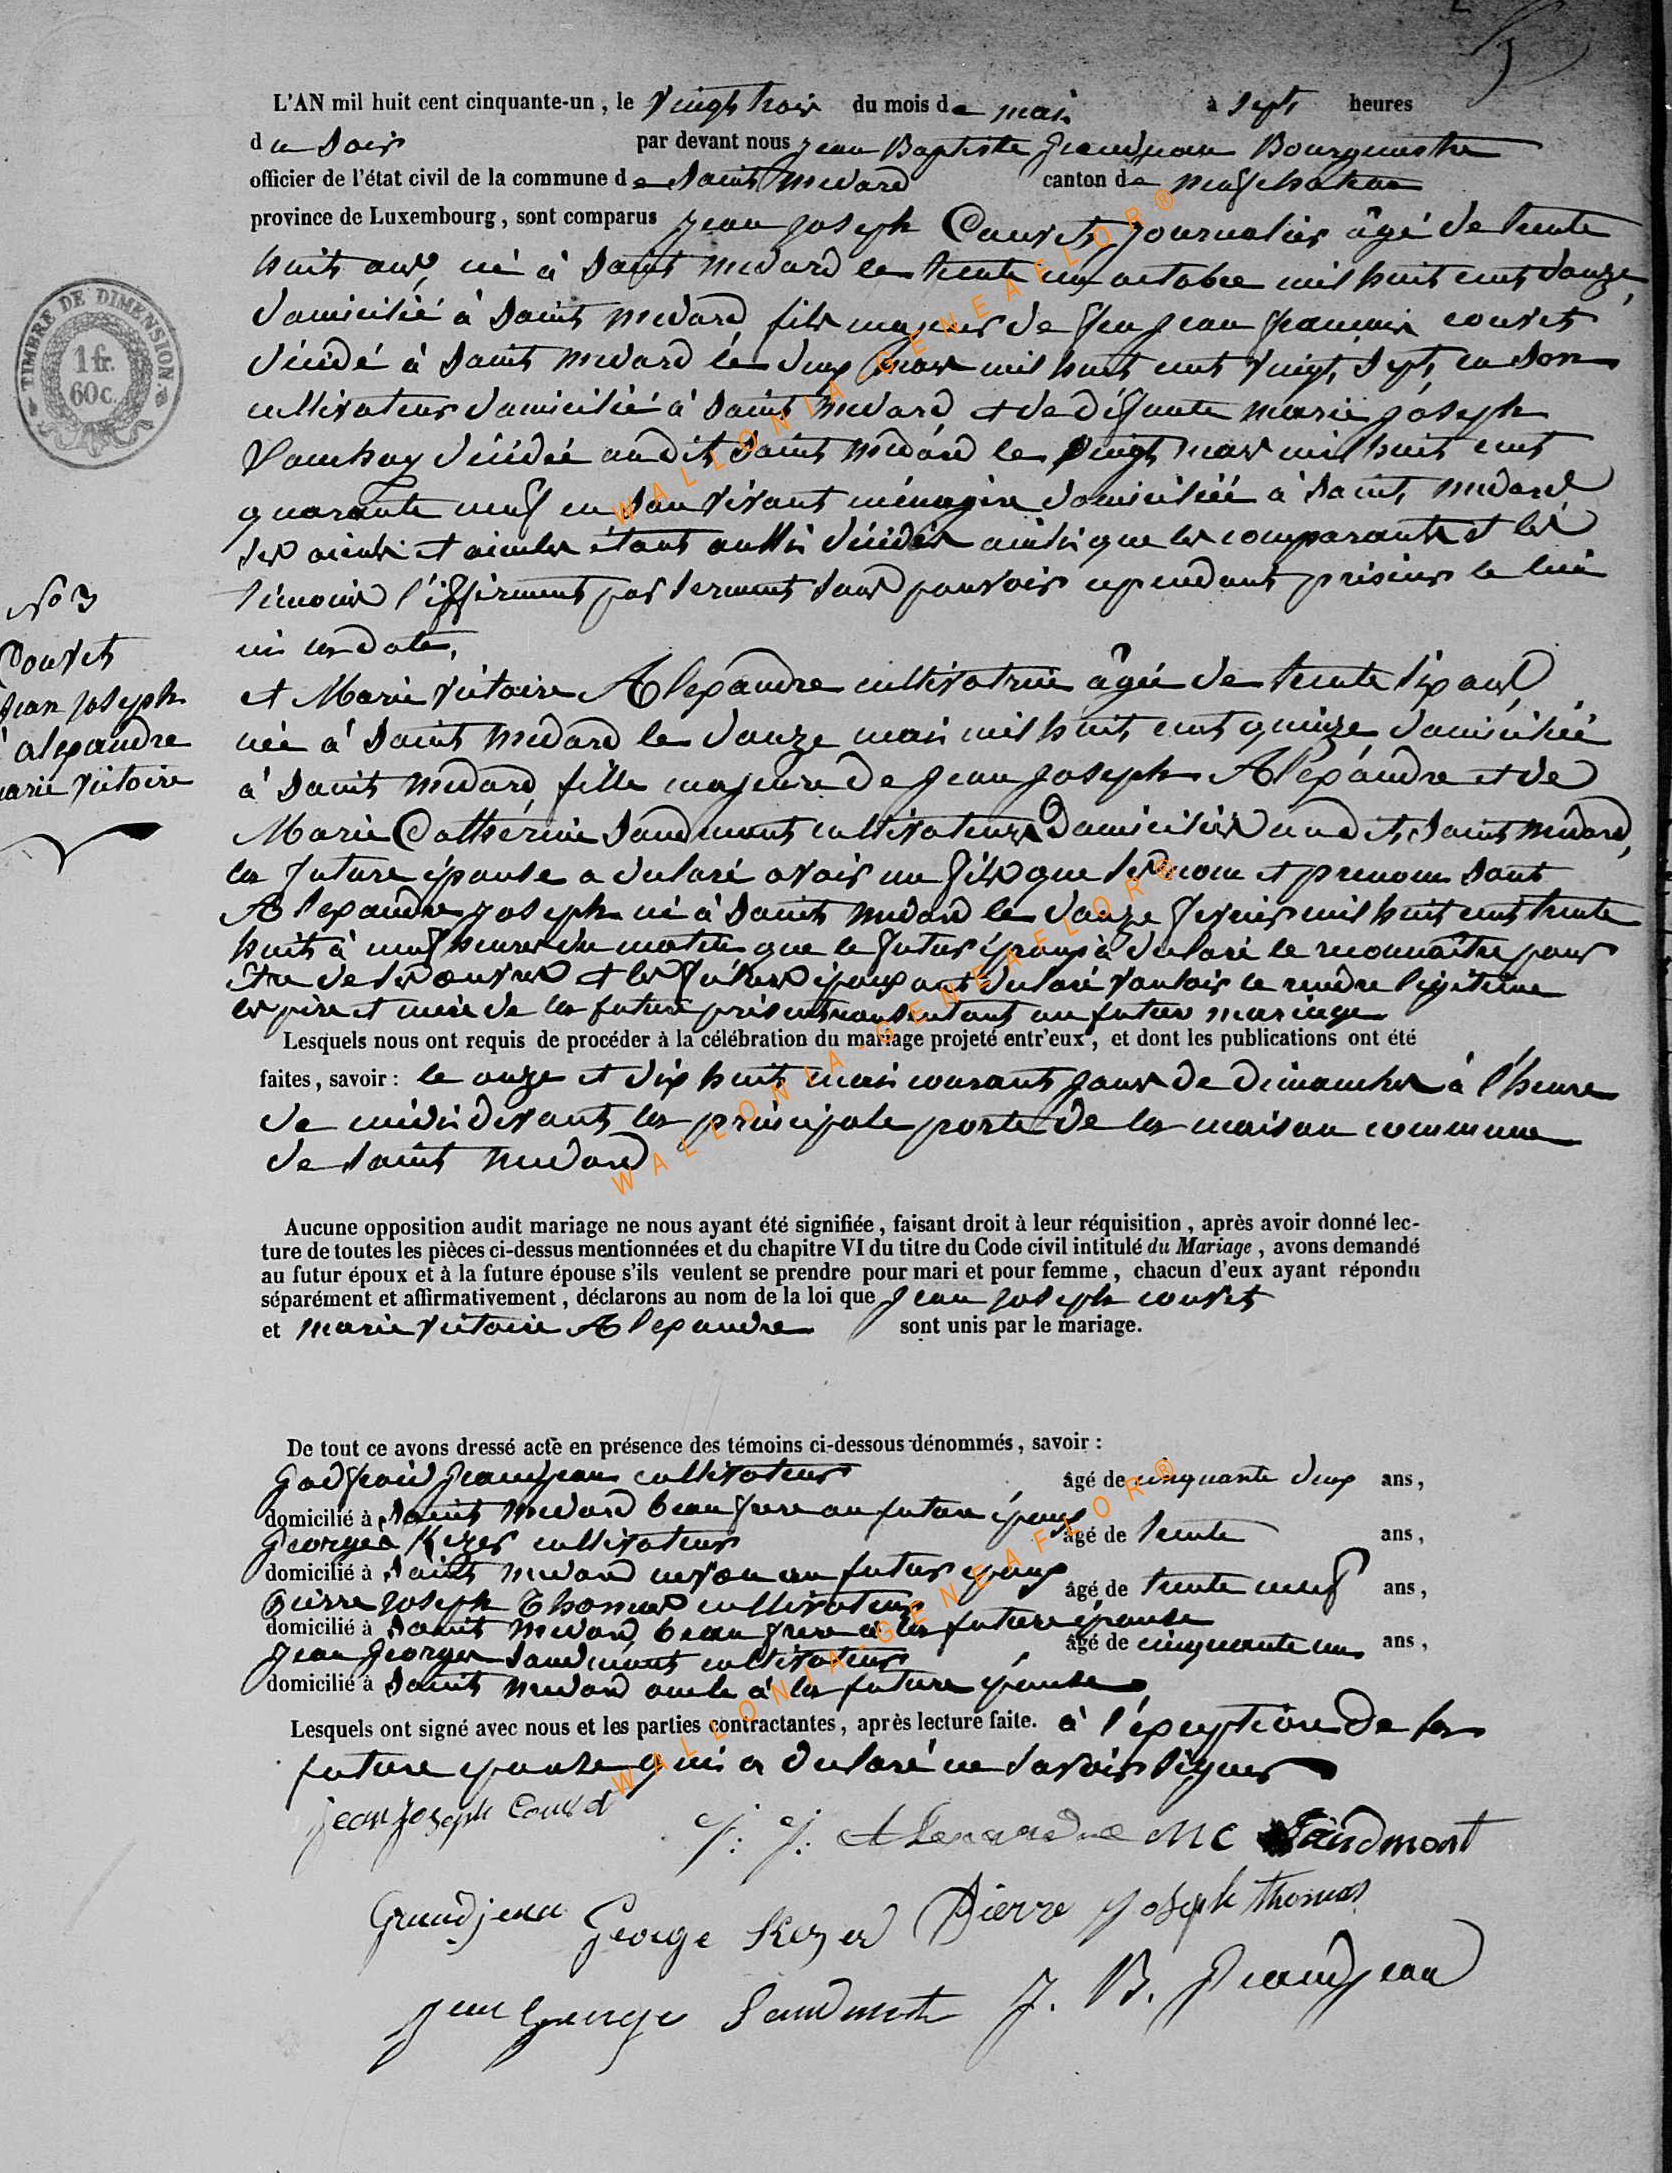 5
L'AN mil huit cent cinquante-un, le vingt trois du mois de mai à sept heures
du soir par devant nous jean Baptiste Grandjean Bourgmestre
officier de l'état civil de la commune de Saint Medard canton de neufchateau
province de Luxembourg, sont comparus jean joseph Couvet, journalier âgé de trente
huit ans, né à Saint Medard le trente un octobre mil huit cent douze,
domicilié à Saint Medard, fils majeur de feu jean françois couvet
décédé à Saint Medard le deux mars mil huit cent vingt sept, en son
cultivateur domicilié à Saint Medard, et de défunte marie joseph
décédée audit Saint Medard le vingt mars mil huit cent
quarante neuf en son vivant ménagère domiciliée à Saint Medard
ses aieuls et aieules étant aussi décédés ainsi que les comparants et les
témoins l'affirment par serment sans pouvoir cependant préciser le lieu
ni la date,
et Marie victoire Alexandre cultivatrice âgée de trente six ans,
née à Saint Medard le douze mai mil huit cent quinze, domiciliée
à Saint Medard, fille majeure de jean joseph Alexandre et de
Marie Catherine Sandmont cultivateurs domiciliés audit Saint Medard,
la future épouse a declaré avoir un fils que les nom et prenom sont
Alexandre joseph né à Saint Medard le douze fevrier mil huit cent trente
huit à neuf heures du matin que le futur époux à declaré le reconnaitre pour
être de ses œuvres et les futurs époux ont declaré vouloir le rendre légitime
les père et mère de la future présents consentant au futur mariage
Lesquels nous ont requis de procéder à la célébration du mariage projeté entr'eux, et dont les publications ont été
faites, savoir : le onze et dix huit mai courant jours de dimanches à l'heure
de midi devant la principale porte de la maison commune
de Saint Medard
Aucune opposition audit mariage ne nous ayant été signifiée, faisant droit à leur réquisition, après avoir donné lec-
ture de toutes les pièces ci-dessus mentionnées et du chapitre VI du titre du Code civil intitulé du Mariage, avons demandé
au futur époux et à la future épouse s'ils veulent se prendre pour mari et pour femme, chacun d'eux ayant répondu
séparément et affirmativement, déclarons au nom de la loi que jean joseph couvet
et marie victoire Alexandre sont unis par le mariage.
De tout ce avons dressé acte en présence des témoins ci-dessous dénommés, savoir :
Godfroid Grandjean cultivateur âgé de cinquante deux ans,
domicilié à Saint Medard beau frere au futur époux
Georges Kezer cultivateur âgé de trente ans,
domicilié à Saint Medard neveu au futur époux
Pierre joseph Thomas cultivateur âgé de trente neuf ans,
domicilié à Saint Medard beau frere à la future épouse
jean Georges Sandmont cultivateur âgé de cinquante un ans,
domicilié à Saint Medard oncle à la future épouse
Lesquels ont signé avec nous et les parties contractantes, après lecture faite. à l'exception de la
future épouse qui a declaré ne savoir signer
jean joseph Couvet
j: j: Alexandre MC Sandmont
Grandjean George Kezer Pierre joseph thomas
jean George Sandmont J. B. Grandjean
TIMBRE DE DIMENSION.
1 fr.
60 c.
No 3
Couvet
jean joseph
alexandre
marie victoire
WALLONIA-GENEAFLOR®
WALLONIA-GENEAFLOR®
WALLONIA-GENEAFLOR®